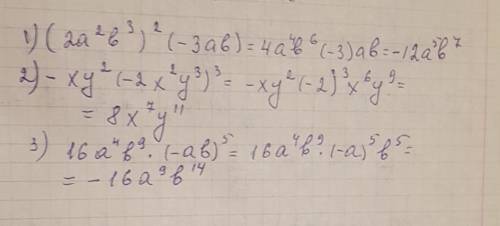 1) (2a²b³)²(-3ab) = 4a⁴b⁶(-3)ab = -12a⁵b⁷
2) - xy²(-2x²y³)³ = -xy²(-2)³x⁶y⁹ =
= 8x⁷y¹¹
3) 16a⁴b⁹·(-ab)⁵ = 16a⁴b⁹·(-a)⁵b⁵ =
= -16a⁹b¹⁴